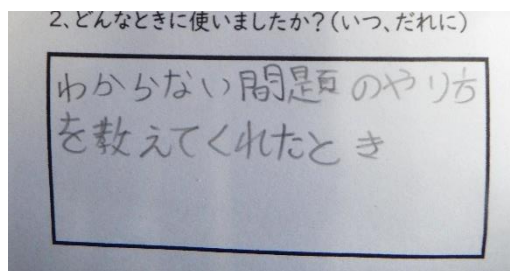 2、どんなときに使いましたか?(いつ、だれに)
わからない問題のやり方
を教えてくれたとき